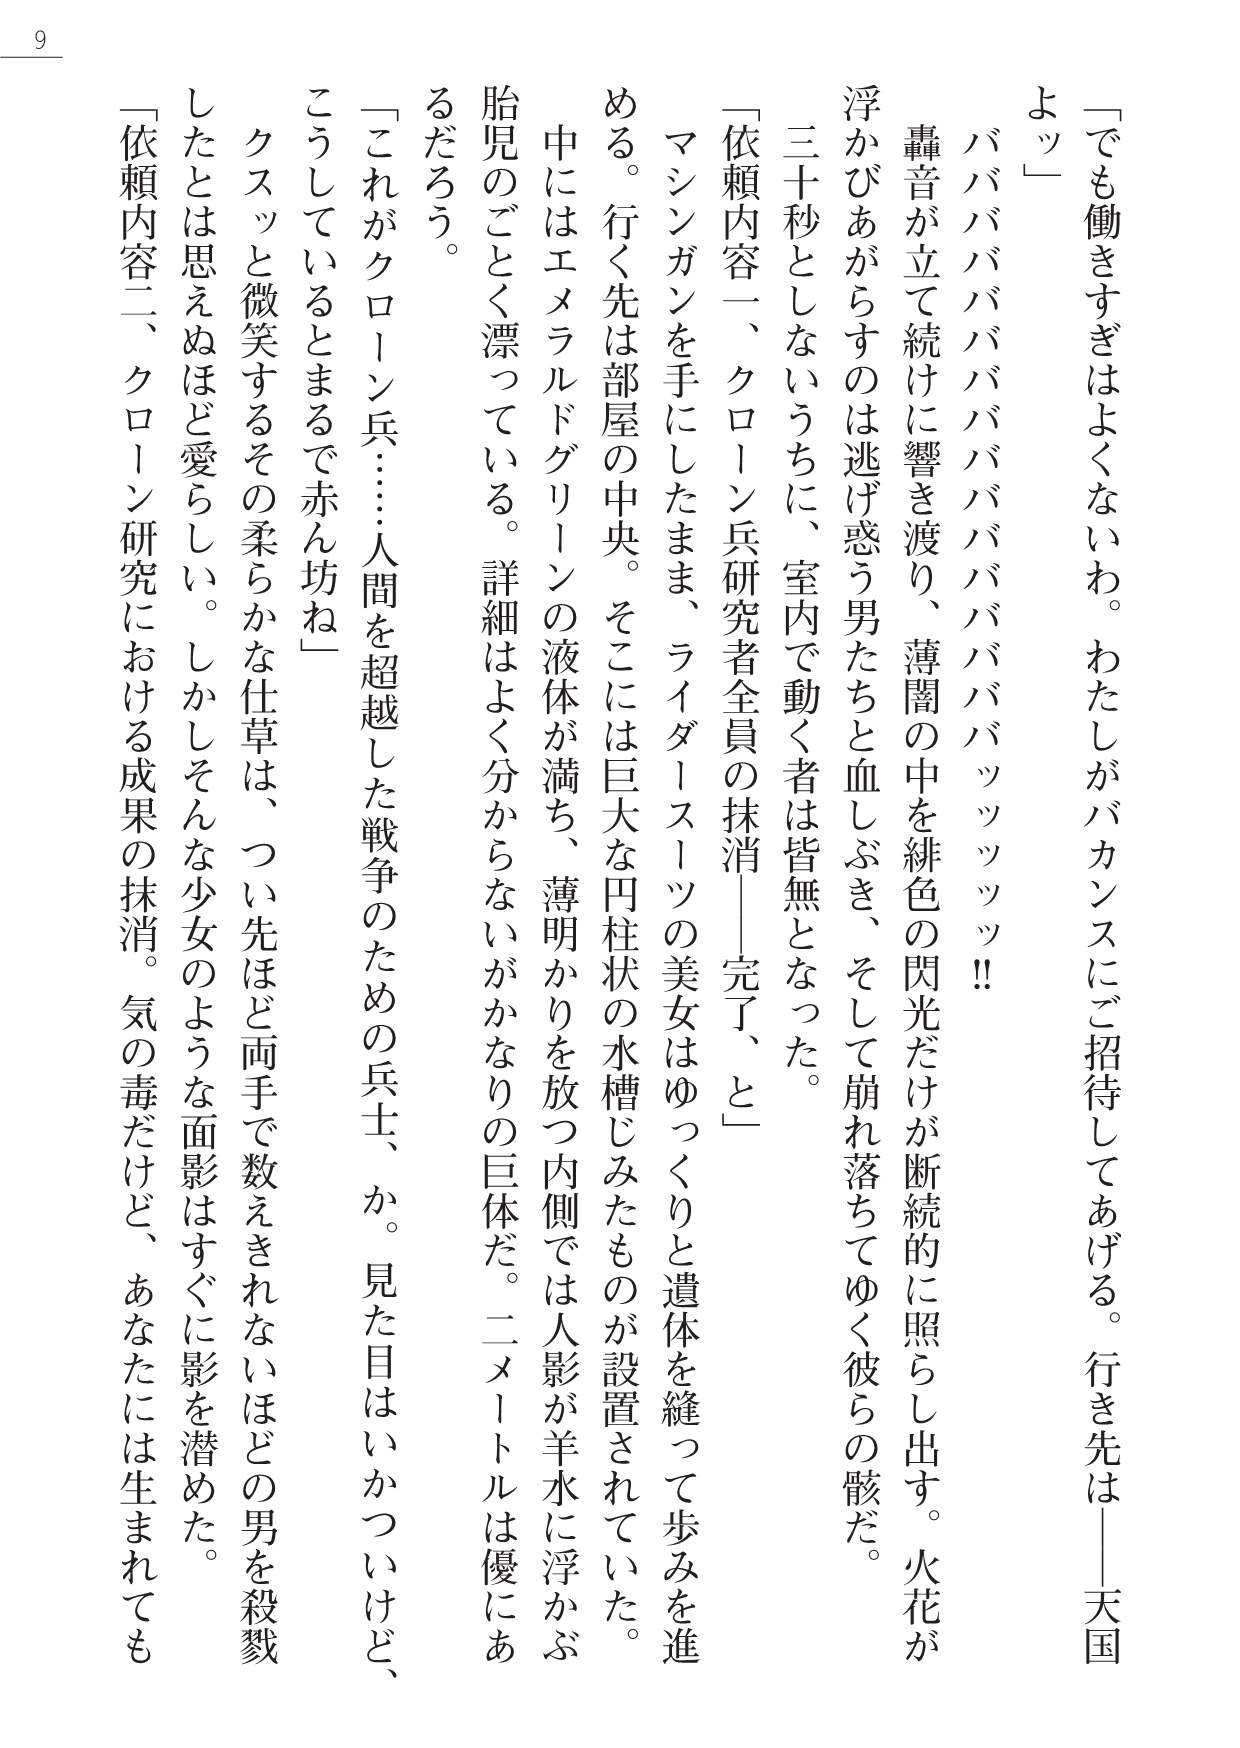 9
「でも働きすぎはよくないわ。わたしがバカンスにご招待してあげる。行き先は――天国
よッ」
ババババババババババババババババッッッッッ!!
轟音が立て続けに響き渡り、薄闇の中を緋色の閃光だけが断続的に照らし出す。火花が
浮かびあがらすのは逃げ惑う男たちと血しぶき、そして崩れ落ちてゆく彼らの骸だ。
三十秒としないうちに、室内で動く者は皆無となった。
「依頼内容一、クローン兵研究者全員の抹消――完了、と」
マシンガンを手にしたまま、ライダースーツの美女はゆっくりと遺体を縫って歩みを進
める。行く先は部屋の中央。そこには巨大な円柱状の水槽じみたものが設置されていた。
中にはエメラルドグリーンの液体が満ち、薄明かりを放つ内側では人影が羊水に浮かぶ
胎児のごとく漂っている。詳細はよく分からないがかなりの巨体だ。二メートルは優にあ
るだろう。
「これがクローン兵……人間を超越した戦争のための兵士、か。見た目はいかついけど、
こうしているとまるで赤ん坊ね」
クスッと微笑するその柔らかな仕草は、つい先ほど両手で数えきれないほどの男を殺戮
したとは思えぬほど愛らしい。しかしそんな少女のような面影はすぐに影を潜めた。
「依頼内容二、クローン研究における成果の抹消。気の毒だけど、あなたには生まれても